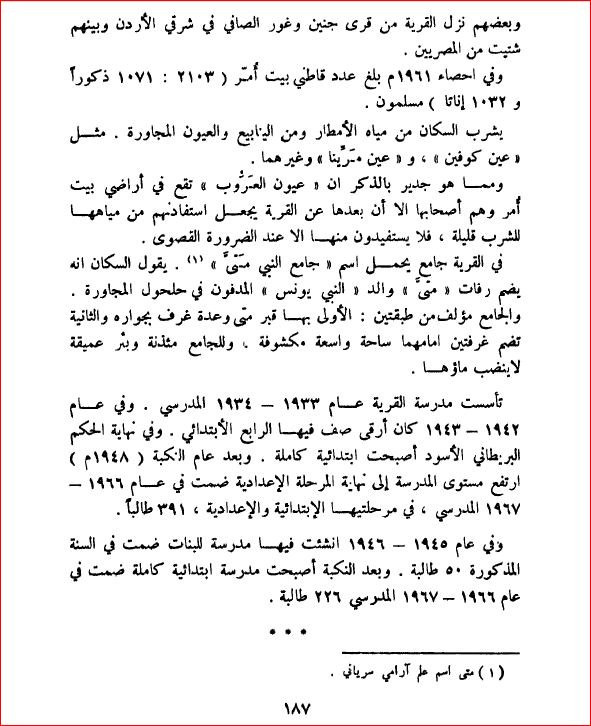 وبعضهم نزل القرية من قرى جنين وغور الصافي في شرقي الأردن وبينهم
شتيت من المصريين .
وفي احصاء ١٩٦١م بلغ عدد قاطني بيت أُمّر ( ٢١٠٣ : ١٠٧١ ذكوراً
و ١٠٣٢ إناثا ) مسلمون .
يشرب السكان من مياه الأمطار ومن الينابيع والعيون المجاورة . مثل
« عين كوفين » ، و « عين مَرِّينا » وغيرهما .
ومما هو جدير بالذكر ان « عيون العَرُّوب » تقع في أراضي بيت
أُمر وهم أصحابها الا أن بعدها عن القرية يجعل استفادتهم من مياهها
للشرب قليلة ، فلا يستفيدون منها الا عند الضرورة القصوى .
في القرية جامع يحمل اسم « جامع النبي مَتّىَّ » (١) . يقول السكان انه
يضم رفات « متّىَّ » والد « النبي يونس » المدفون في حلحول المجاورة .
والجامع مؤلف من طبقتين : الأولى بها قبر متى وعدة غرف بجواره والثانية
تضم غرفتين امامهما ساحة واسعة مكشوفة . وللجامع مئذنة وبئر عميقة
لاينضب ماؤها .
تأسست مدرسة القرية عام ١٩٣٣ – ١٩٣٤ المدرسي . وفي عام
١٩٤٢ – ١٩٤٣ كان أرقى صف فيها الرابع الأبتدائي . وفي نهاية الحكم
البريطاني الأسود أصبحت ابتدائية كاملة . وبعد عام النكبة ( ١٩٤٨م )
ارتفع مستوى المدرسة إلى نهاية المرحلة الإعدادية ضمت في عام ١٩٦٦ –
١٩٦٧ المدرسي ، في مرحلتيها الإبتدائية والإعدادية ، ٣٩١ طالباً .
وفي عام ١٩٤٥ – ١٩٤٦ انشئت فيها مدرسة للبنات ضمت في السنة
المذكورة ٥٠ طالبة . وبعد النكبة أصبحت مدرسة ابتدائية كاملة ضمت في
عام ١٩٦٦ – ١٩٦٧ المدرسي ٢٢٦ طالبة .
* * *
(١) متى اسم علم آرامي سرياني .
١٨٧